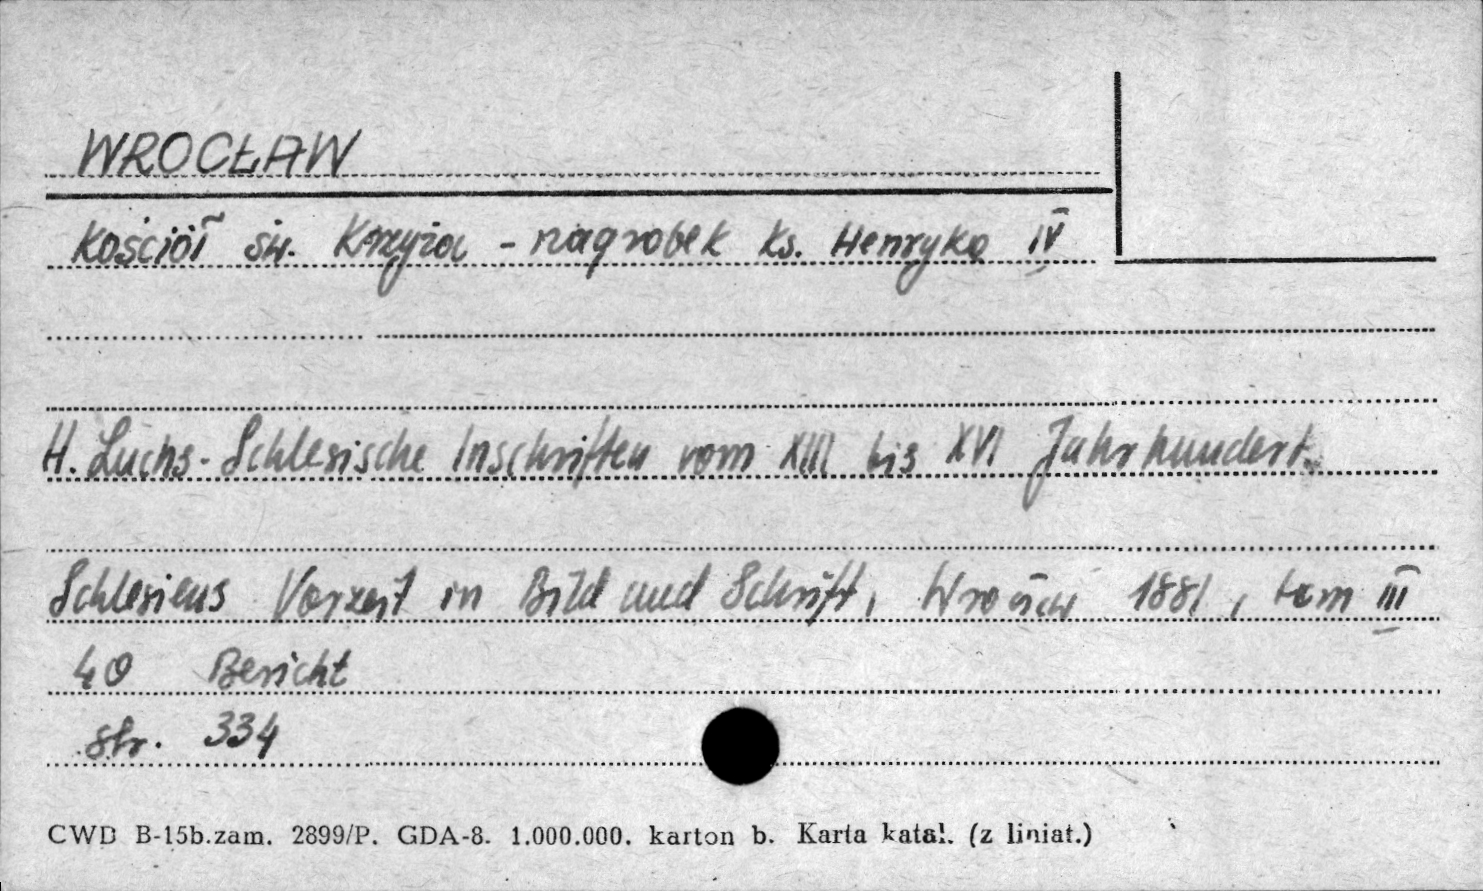 WROCŁAW
Kościół św. Krzyża - nagrobek ks. Henryka IV
H. Luchs - Schlesische Inschriften vom XIII bis XVI Jahrhundert.
Schlesiens Vorzeit in Bild und Schrift, 1881, tom III
40 Bericht
str. 334
CWD B-15b.zam. 2899/P. GDA-8. 1.000.000. karton b. Karta katal. (z liniat.)